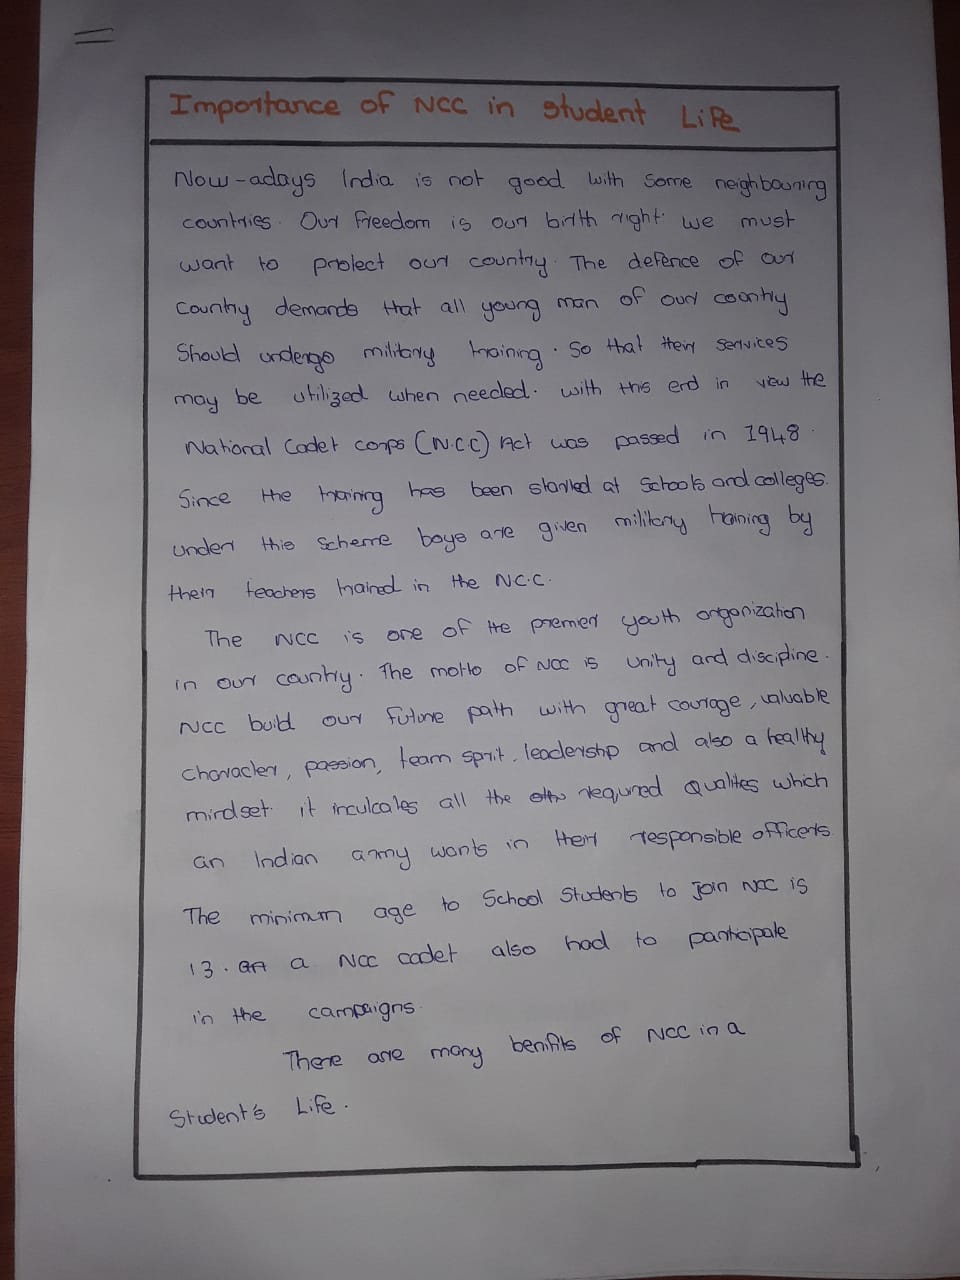 Importance of NCC in student Life
Now-adays India is not good with some neighbouring
countries. Our freedom is our birth right. we must
want to protect our country. The defence of our
Country demands that all young man of our country
Should undergo military training. So that their services
may be utilized when needed. with this end in view the
National Cadet corps (N.C.C) Act was passed in 1948.
Since the training has been started at schools and colleges.
under this scheme boys are given military training by
their teachers trained in the N.C.C.
The NCC is one of the premier youth organization
in our country. The motto of NCC is unity and discipline.
NCC build our future path with great courage, valuable
character, passion, team sprit, leadership and also a healthy
mindset. it inculcates all the required Qualites which
an Indian army wants in their responsible officers
The minimum age to School Students to join NCC is
13. a NCC cadet also had to participate
in the campaigns.
There are many benifits of NCC in a
Student's Life.